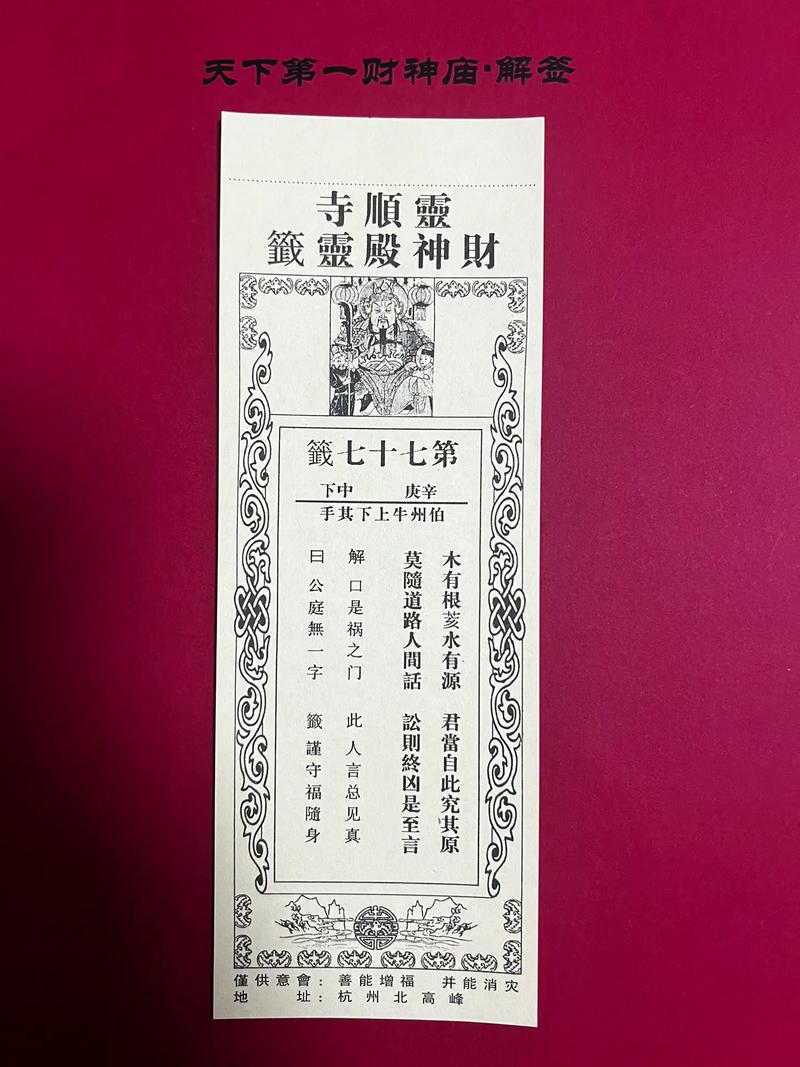 天下第一财神庙·解签
靈順寺
財神殿靈籤
第七十七籤
辛庚 中下
伯州牛上下其手
木有根荄水有源 君當自此究其原
莫隨道路人間話 訟則終凶是至言
解 口是祸之门 此 人言总见真
曰 公庭無一字 籤 謹守福隨身
僅供意會：善能增福 并能消灾
地址：杭州北高峰